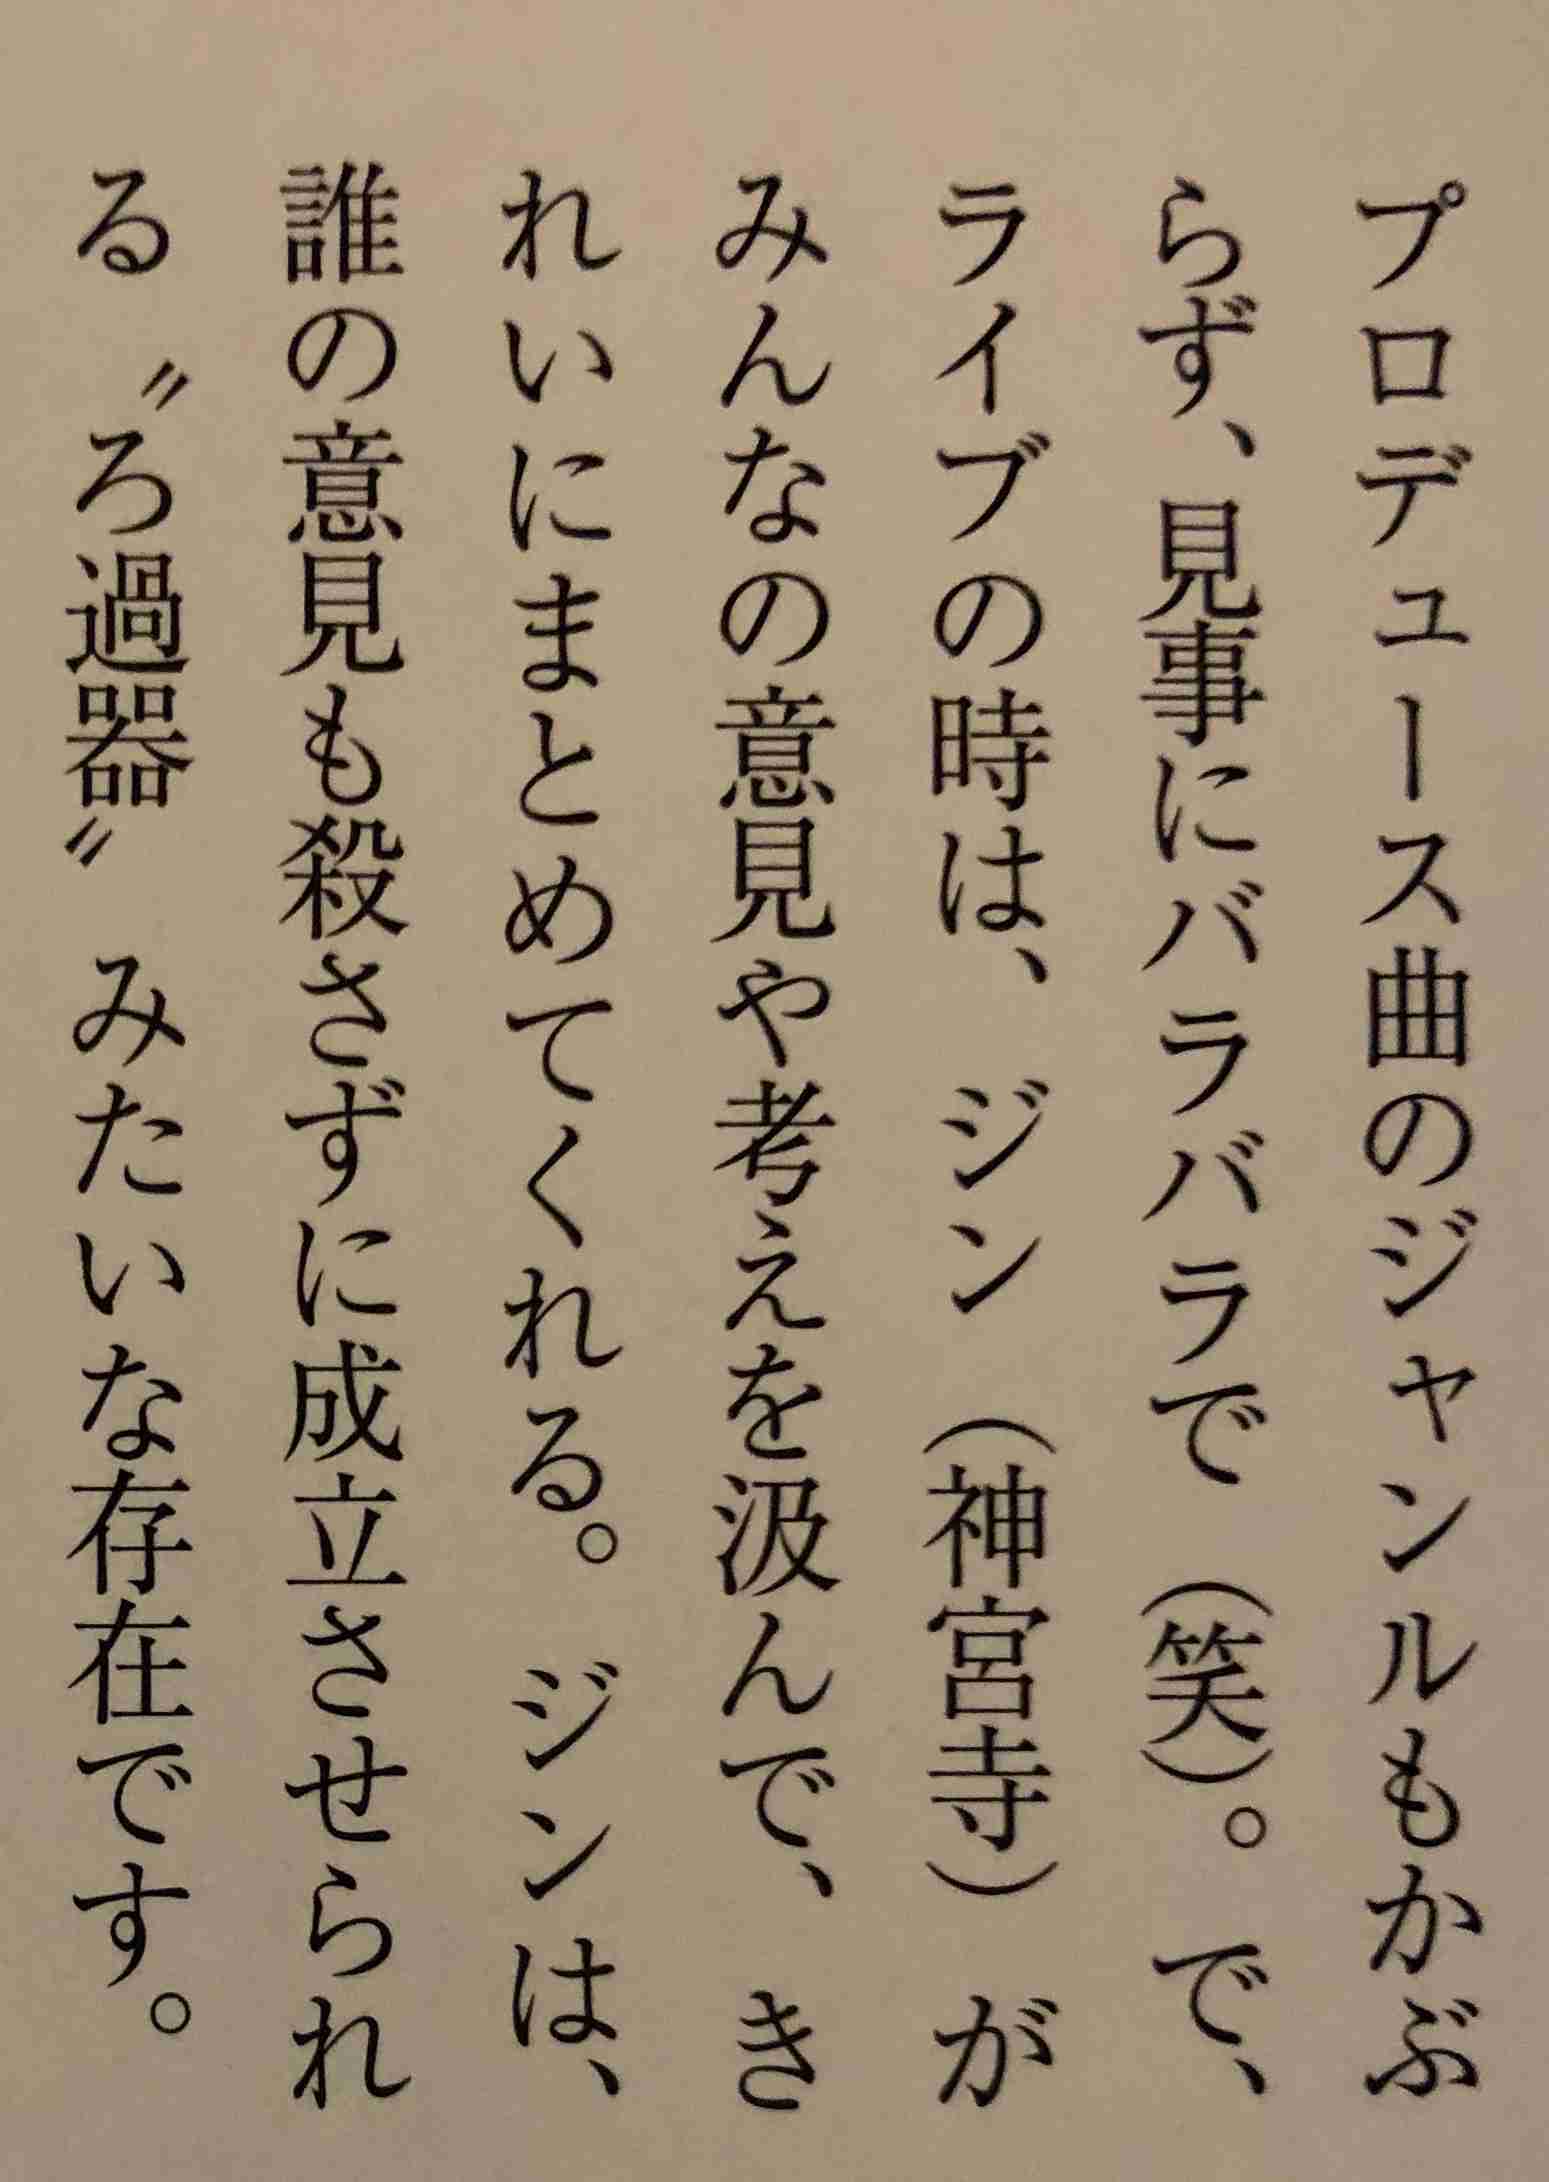 プロデュース曲のジャンルもかぶ
らず、見事にバラバラで（笑）。で、
ライブの時は、ジン（神宮寺）が
みんなの意見や考えを汲んで、き
れいにまとめてくれる。ジンは、
誰の意見も殺さずに成立させられ
る〝ろ過器〟みたいな存在です。